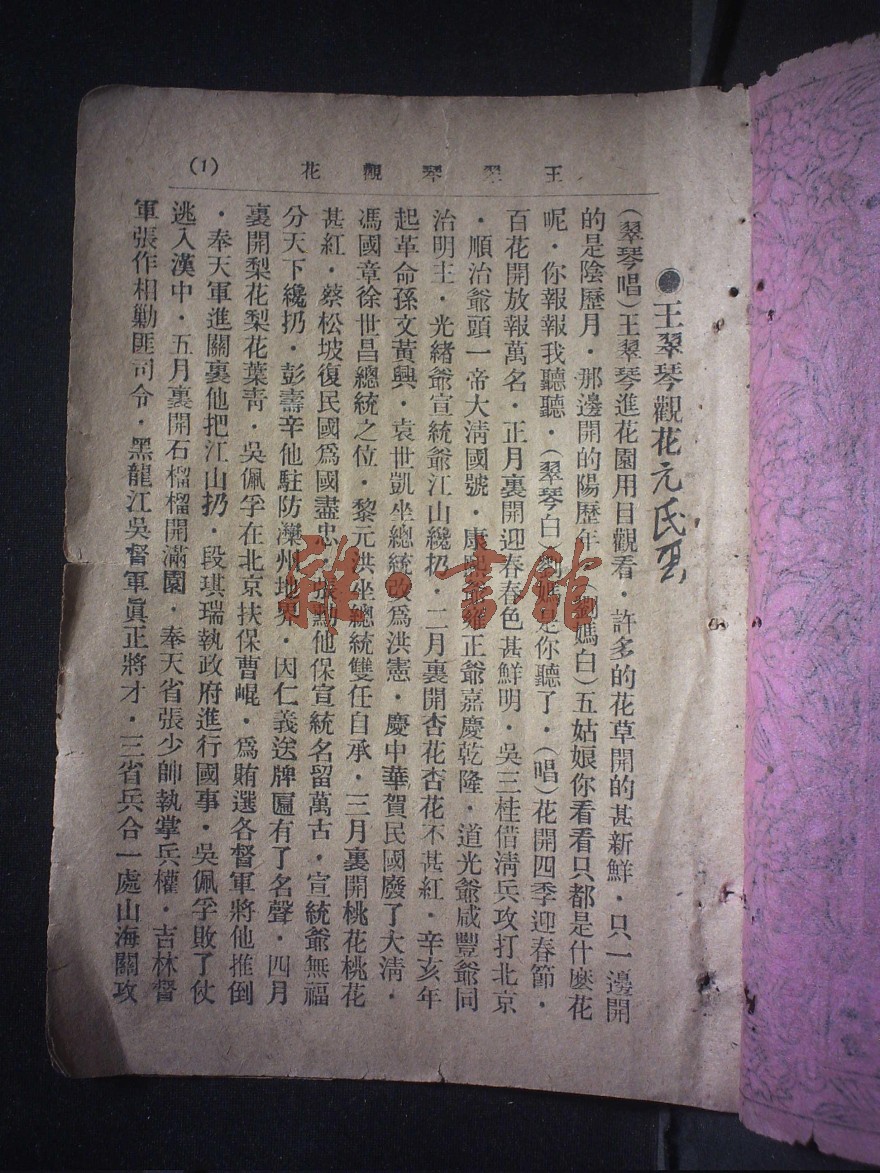 王翠琴觀花 (1)
●王翠琴觀花元氏
(翠琴唱)王翠琴進花園用目觀看·許多的花草開的甚新鮮·只一邊開
的是陰歷月·那邊開的陽歷年·(劉媽白)五姑娘你看看只都是什麽花
呢·你報報我聽聽·(翠琴白)劉媽是你聽了·(唱)花開四季迎春節·
百花開放報萬名·正月裏開迎春春色甚鮮明·吳三桂借淸兵攻打北京
·順治爺頭一帝大淸國號·康熙爺雍正爺嘉慶乾隆·道光爺咸豐爺同
治明主·光緒爺宣統爺江山纔扔·二月裏開杏花杏花不甚紅·辛亥年
起革命孫文黃興·袁世凱坐總統改爲洪憲·慶中華賀民國廢了大淸·
馮國章徐世昌總統之位·黎元洪坐總統雙任自承·三月裏開桃花桃花
甚紅·蔡松坡復民國爲國盡忠·張勳他保宣統名留萬古·宣統爺無福
分天下纔扔·彭壽辛他駐防灤州地界·因仁義送牌匾有了名聲·四月
裏開梨花梨花葉靑·吳佩孚在北京扶保曹崐·爲賄選各督軍將他推倒
·奉天軍進關裏他把江山扔·段琪瑞執政府進行國事·吳佩孚敗了仗
逃入漢中·五月裏開石榴榴開滿園·奉天省張少帥執掌兵權·吉林督
軍張作相勦匪司令·黑龍江吳督軍眞正將才·三省兵合一處山海關攻
雜·書館